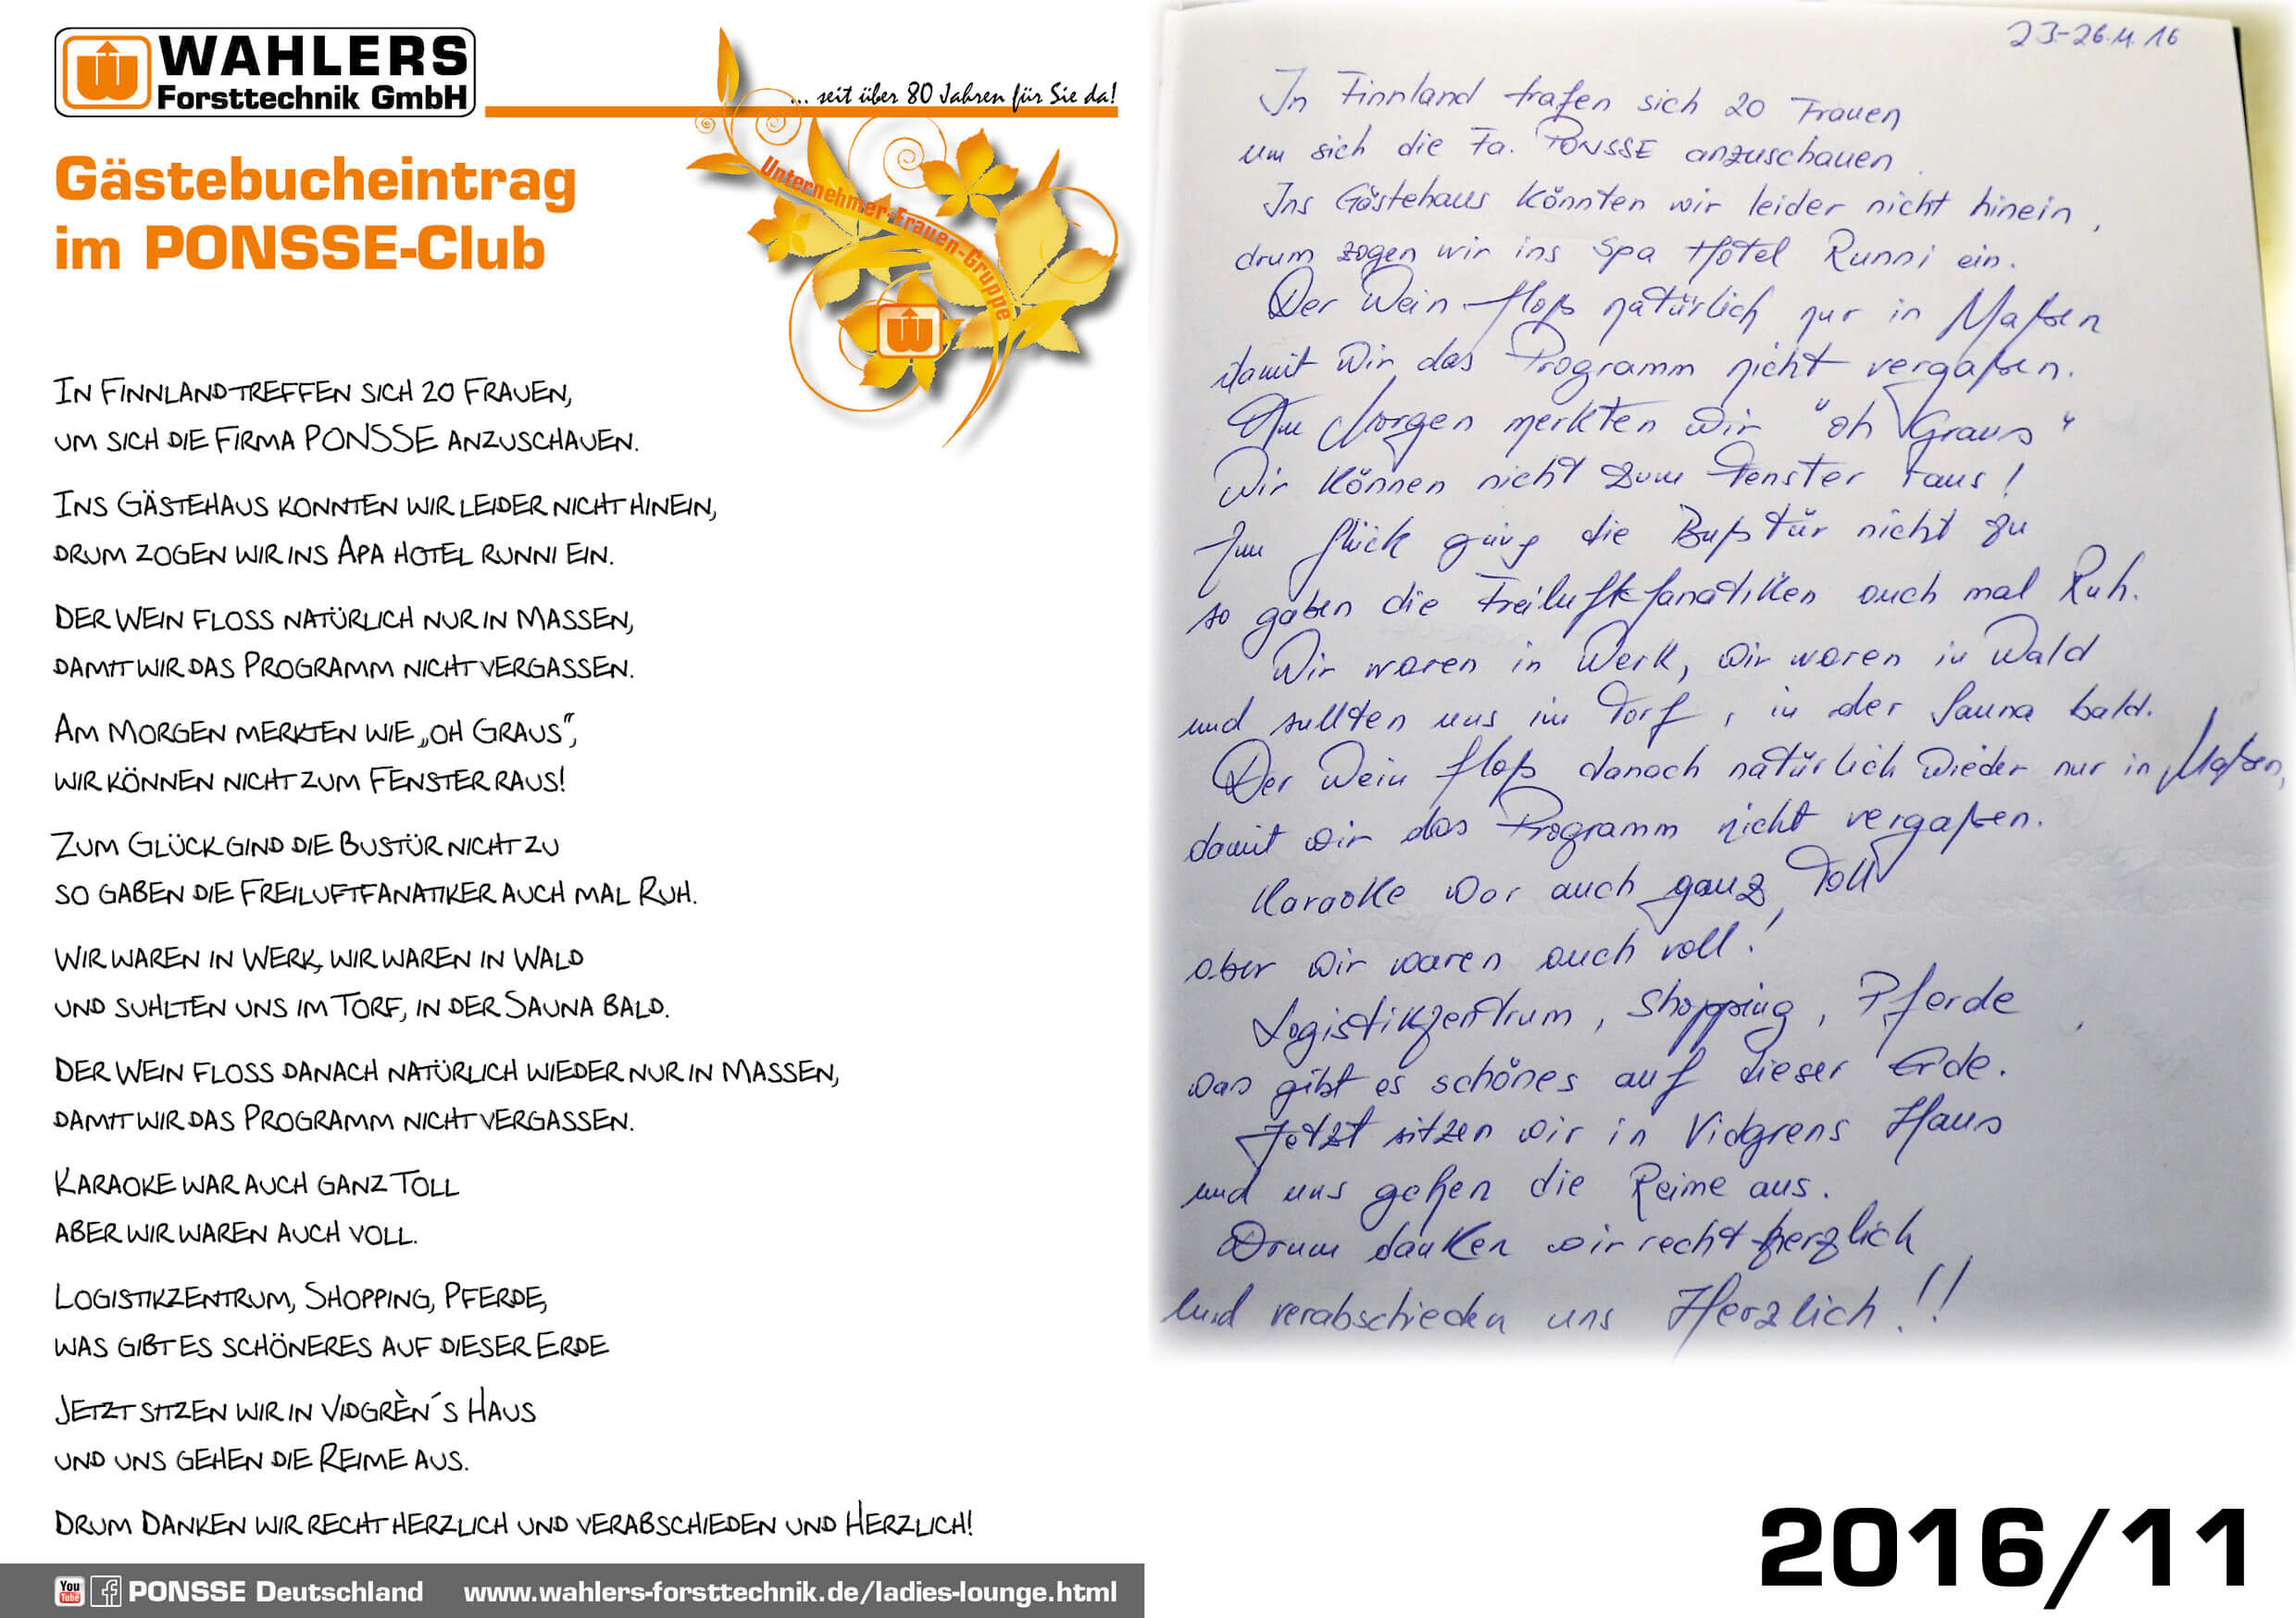 WAHLERS
Forsttechnik GmbH
... seit über 80 Jahren für Sie da!
Gästebucheintrag
im PONSSE-Club
Unternehmer-Frauen-Gruppe
IN FINNLAND TREFFEN SICH 20 FRAUEN,
UM SICH DIE FIRMA PONSSE ANZUSCHAUEN.
INS GÄSTEHAUS KONNTEN WIR LEIDER NICHT HINEIN,
DRUM ZOGEN WIR INS APA HOTEL RUNNI EIN.
DER WEIN FLOSS NATÜRLICH NUR IN MASSEN,
DAMIT WIR DAS PROGRAMM NICHT VERGASSEN.
AM MORGEN MERKTEN WIE „OH GRAUS“,
WIR KÖNNEN NICHT ZUM FENSTER RAUS!
ZUM GLÜCK GIND DIE BUSTÜR NICHT ZU
SO GABEN DIE FREILUFTFANATIKER AUCH MAL RUH.
WIR WAREN IN WERK, WIR WAREN IN WALD
UND SUHLTEN UNS IM TORF, IN DER SAUNA BALD.
DER WEIN FLOSS DANACH NATÜRLICH WIEDER NUR IN MASSEN,
DAMIT WIR DAS PROGRAMM NICHT VERGASSEN.
KARAOKE WAR AUCH GANZ TOLL
ABER WIR WAREN AUCH VOLL.
LOGISTIKZENTRUM, SHOPPING, PFERDE,
WAS GIBT ES SCHÖNERES AUF DIESER ERDE
JETZT SITZEN WIR IN VIDGRÈN´S HAUS
UND UNS GEHEN DIE REIME AUS.
DRUM DANKEN WIR RECHT HERZLICH UND VERABSCHIEDEN UND HERZLICH!
You Tube f PONSSE Deutschland www.wahlers-forsttechnik.de/ladies-lounge.html
23-26.11.16
In Finnland trafen sich 20 Frauen
um sich die Fa. PONSSE anzuschauen
Ins Gästehaus könnten wir leider nicht hinein,
drum zogen wir ins Spa Hotel Runni ein.
Der Wein floß natürlich nur in Maßen
damit wir das Programm nicht vergaßen.
Am Morgen merkten wir "oh Graus"
Wir können nicht zum Fenster raus!
Zum Glück ging die Bußtür nicht zu
so gaben die Freiluftfanatiken auch mal Ruh.
Wir waren in Werk, wir waren in Wald
und sullten uns im Torf, in der Sauna bald.
Der Wein floß danach natürlich wieder nur in Maßen,
damit wir das Programm nicht vergaßen.
Karaoke war auch ganz Toll
aber wir waren auch voll!
Logistikzentrum, Shopping, Pferde,
was gibt es schönes auf dieser Erde.
Jetzt sitzen wir in Vidgrens Haus
und uns gehen die Reime aus.
Drum danken wir recht herzlich
und verabschieden uns Herzlich!!
2016/11